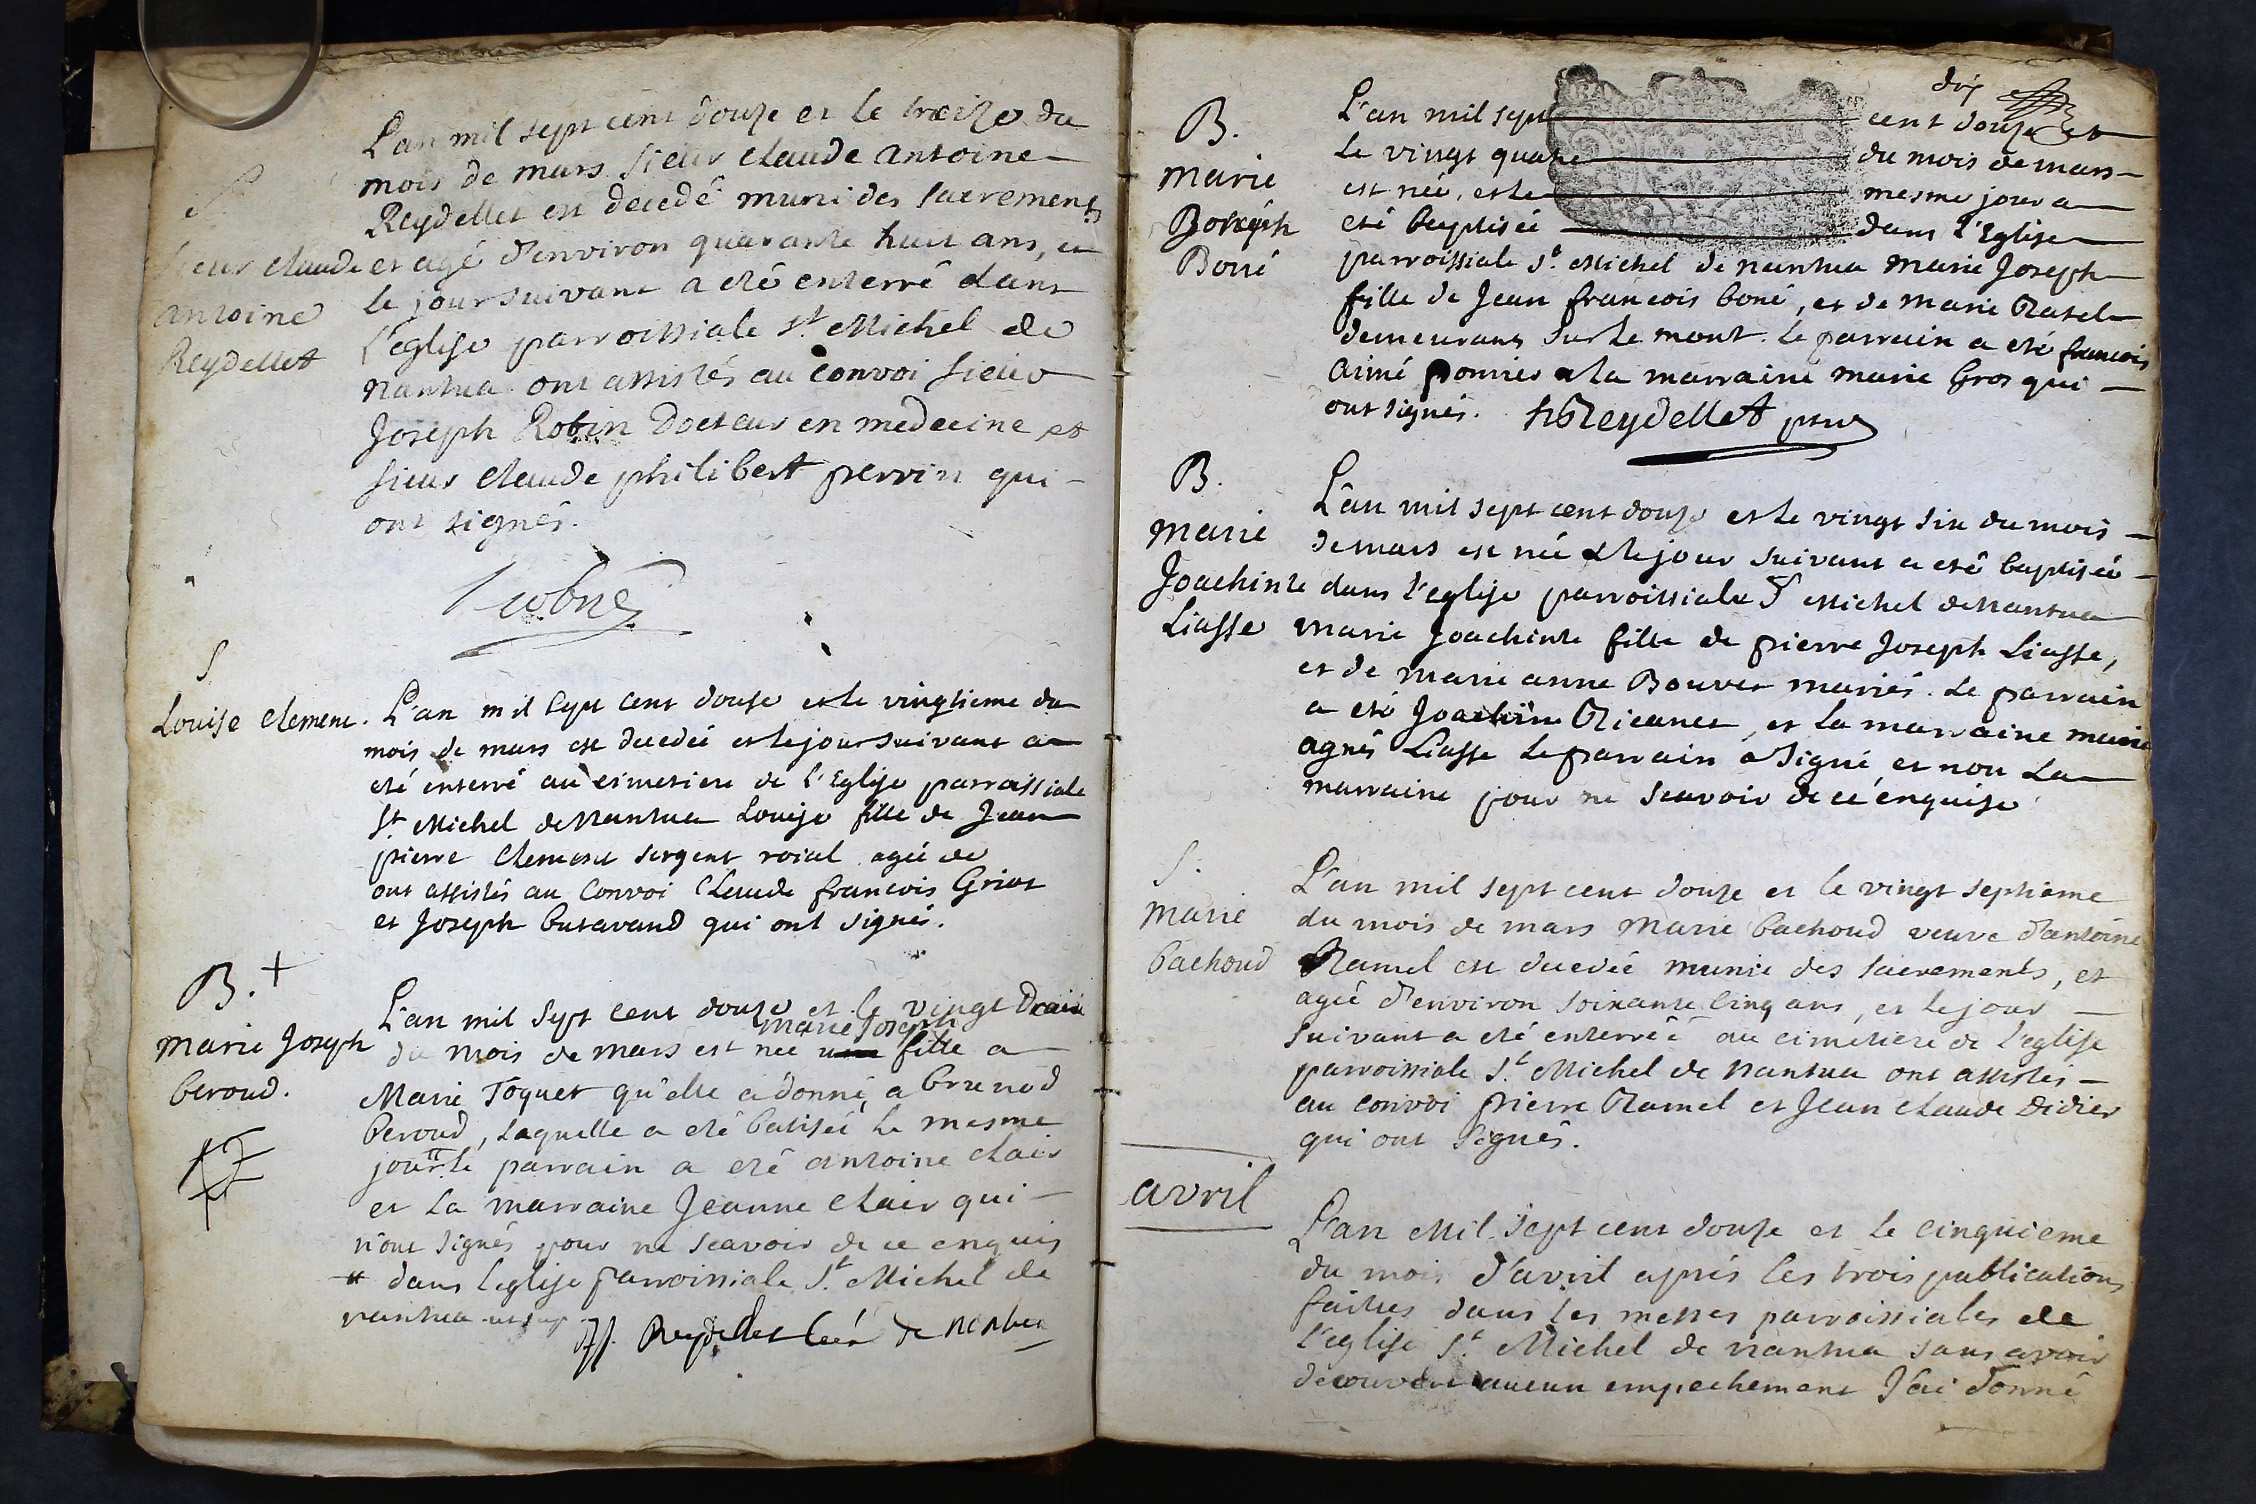 L'an mil sept cent douze et le treize du
mois de mars sieur Claude Antoine
Reydellet est decedé muni des sacrements
S.
sieur Claude
antoine
Reydellet
et agé d'environ quarante huit ans, et
le jour suivant a eté enterré dans
l'eglise parroissiale St Michel de
nantua ont assistés au convoi sieur
Joseph Robin Docteur en medecine et
sieur Claude philibert perrin qui
ont signés.
S
Louise Clement.
L'an mil sept cent douse et le vingtieme du
mois de mars est decedée et le jour suivant a
eté enterré au cimetiere de l'Eglise parroissiale
St Michel de Nantua Louise fille de Jean
pierre Clement sergent roial agée de
ont assistés au Convoi Claude francois Griot
et Joseph butavand qui ont signés.
B. +
Marie Joseph
beroud.
L'an mil sept cent douze et le vingt
marie Joseph
du mois de mars est née une fille a
Marie Toquet qu'elle a donné a brunod
Beroud, laquelle a eté batisée le mesme
jour # le parrain a eté antoine clair
et la marraine Jeanne Clair qui
n'ont signés pour ne scavoir de ce enquis
# dans l'eglise parroissiale St Michel de
nantua
Reydellet curé de nantua
dix
B.
Marie
Joseph
Boné
L'an mil sept cent douze et
le vingt quatre du mois de mars
est née, et le mesme jour a
eté baptisée dans l'Eglise
parroissiale St. Michel de nantua Marie Joseph
fille de Jean francois boné, et de Marie Ratel
demeurans sur le mont. le parrain a eté francois
aimé ponnier et la marraine marie Gros qui
ont signés. Reydellet ptre
B.
Marie
Joachinte
Liasse
L'an mil sept cent douze et le vingt six du mois
de mars est née et le jour suivant a eté baptisée
dans l'eglise parroissiale St Michel de Nantua
Marie Joachinte fille de pierre Joseph Liasse,
et de Marie anne Bouver mariés. Le parrain
a eté Joachim Ricanet, et la marraine marie
agnés Liasse le parrain a signé, et non la
marraine pour ne scavoir de ce enquise
S.
Marie
bachoud
L'an mil sept cent douze et le vingt septieme
du mois de mars Marie bachoud veuve d'antoine
Ramel est decedée munie des sacrements, et
agée d'environ soixante cinq ans, et le jour
suivant a eté enterrée au cimetiere de l'eglise
parroissiale St. Michel de Nantua ont assistés
au convoi pierre Ramel et Jean claude Didier
qui ont signés.
avril
L'an Mil sept cent douze et le cinquieme
du mois d'avril aprés les trois publications
faittes dans les messes parroissiales de
l'eglise St. Michel de nantua sans avoir
decouvert aucun empechement J'ai donné